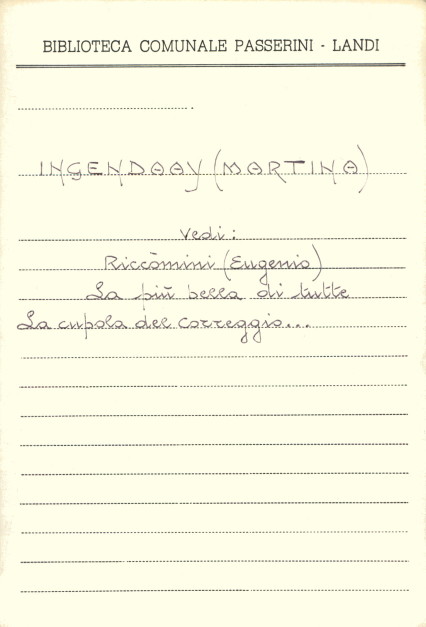 BIBLIOTECA COMUNALE PASSERINI - LANDI
INGENDAAY (MARTINA)
Vedi:
Riccòmini (Eugenio)
La più bella di tutte
La cupola del Correggio...